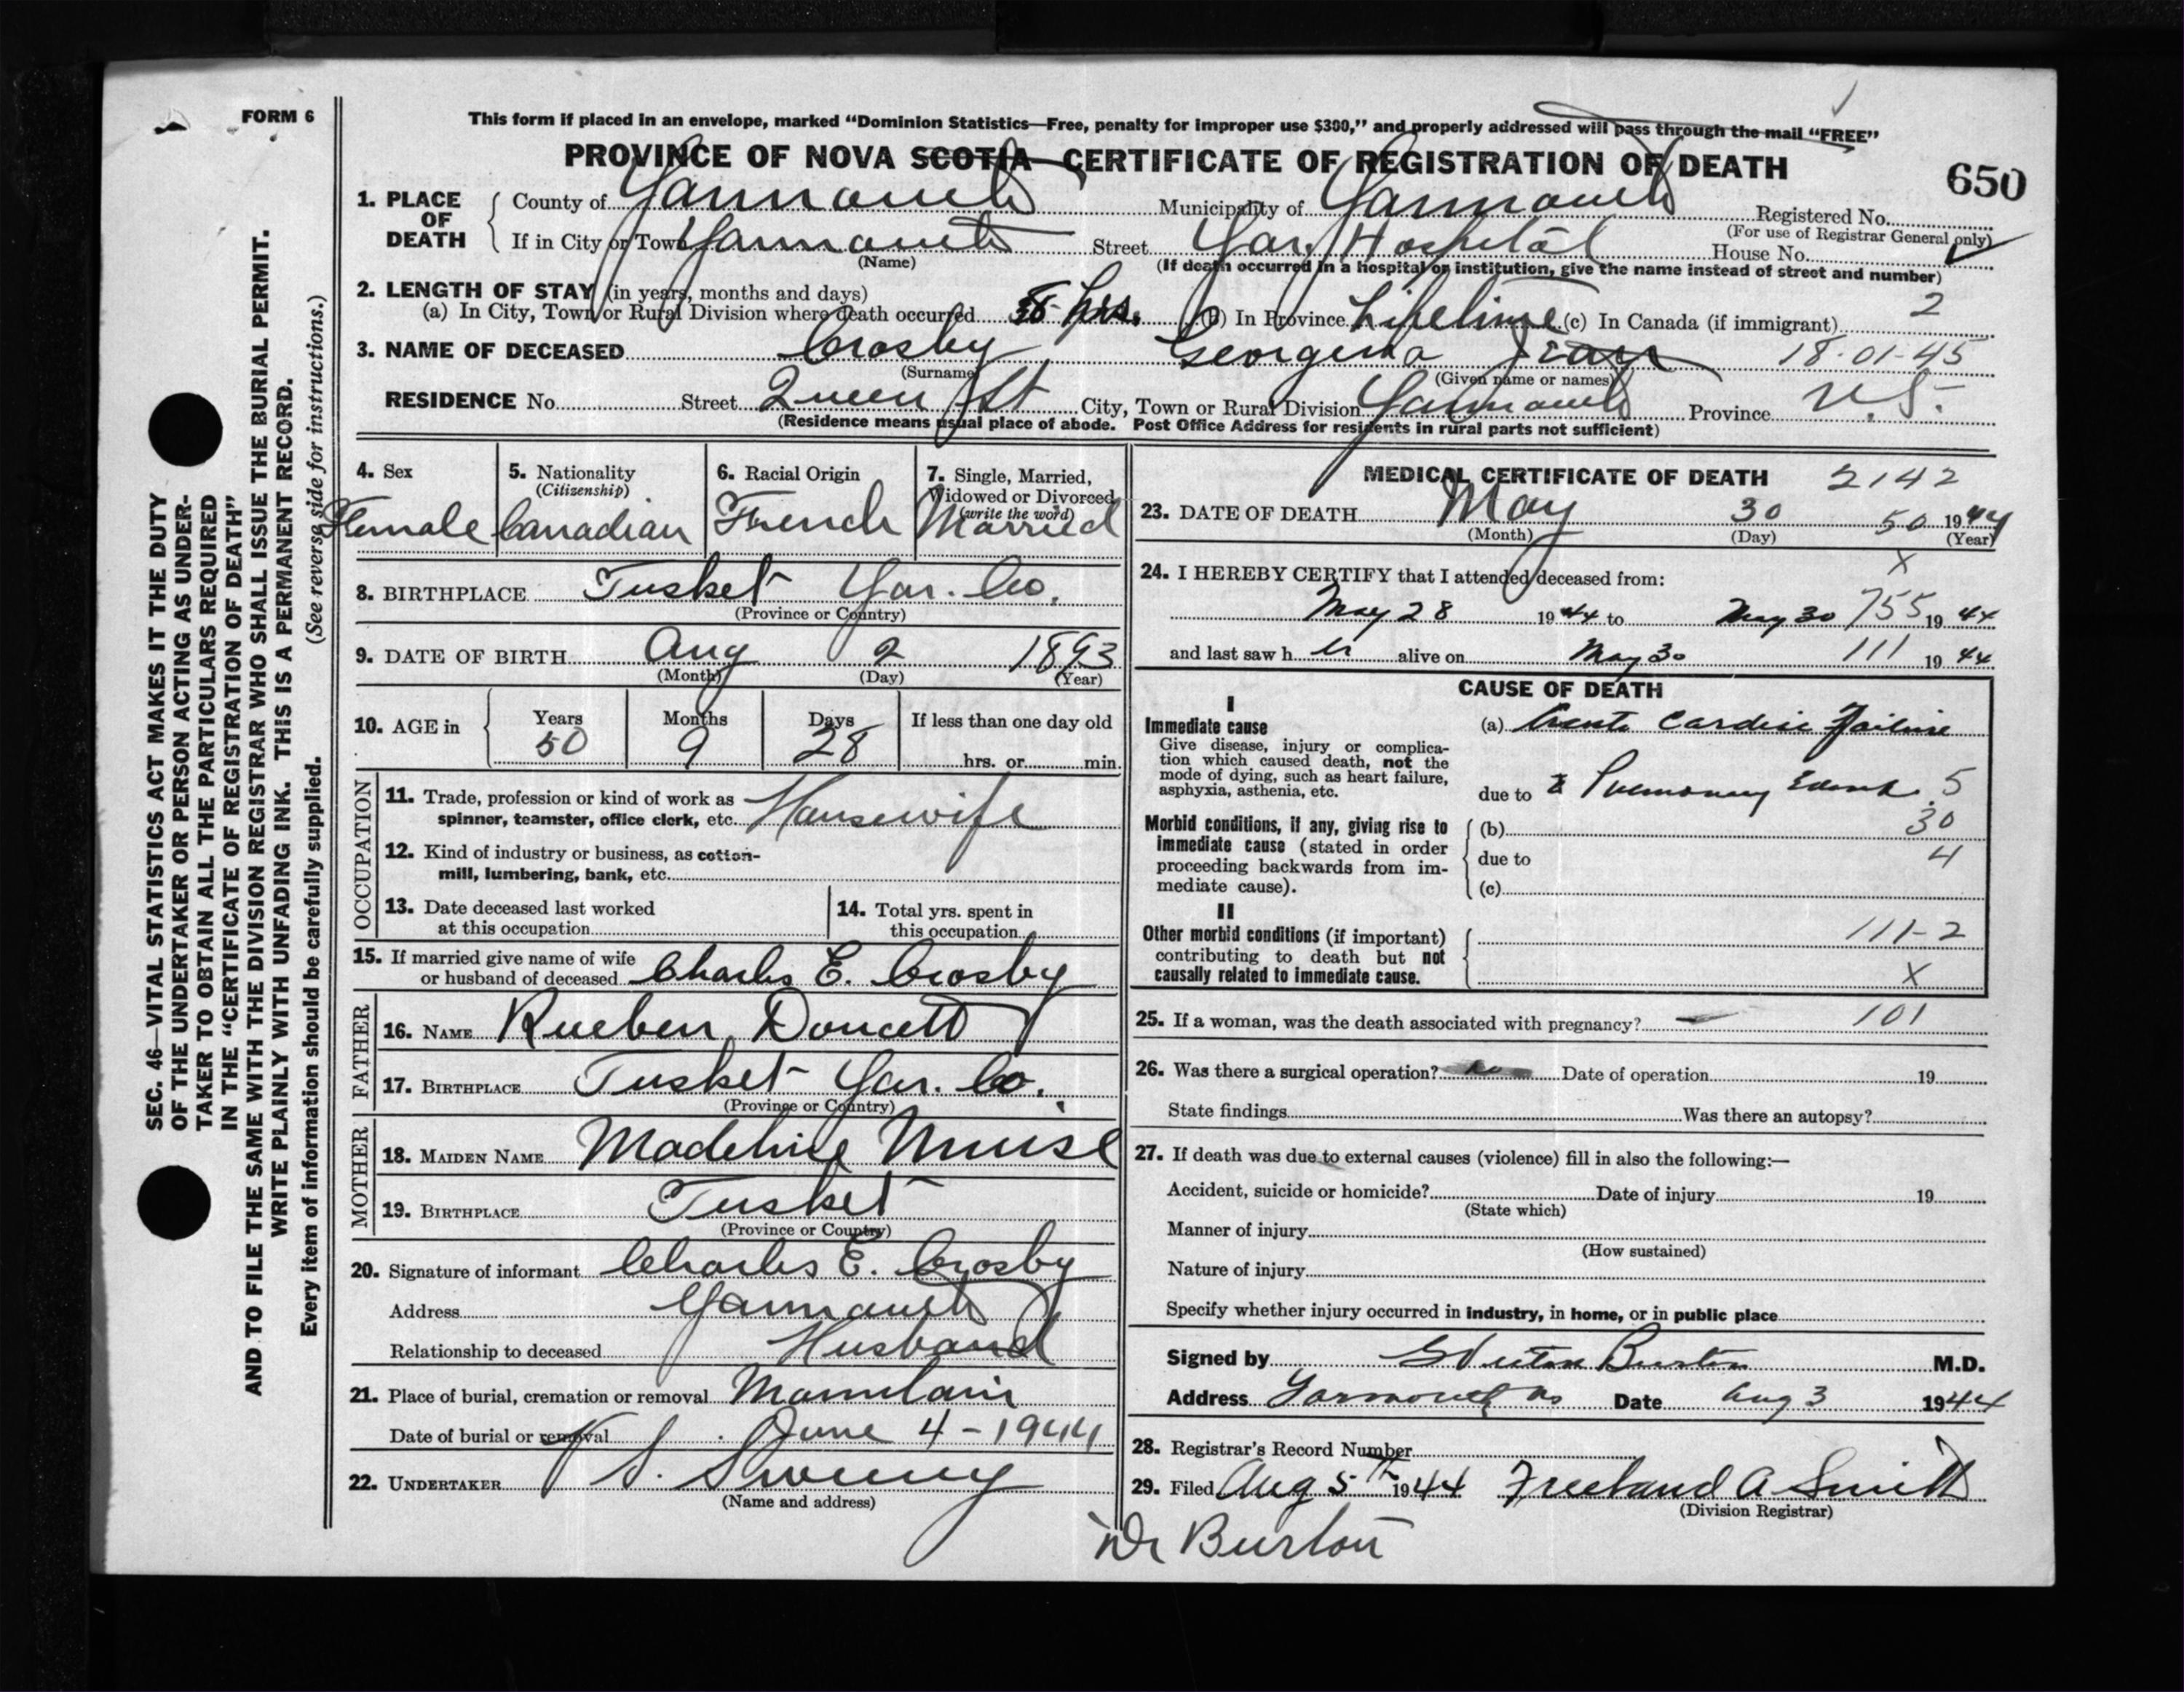 FORM 6
This form if placed in an envelope, marked “Dominion Statistics—Free, penalty for improper use $300,” and properly addressed will pass through the mail “FREE”
PROVINCE OF NOVA SCOTIA—CERTIFICATE OF REGISTRATION OF DEATH
650
1. PLACE OF DEATH
County of Yarmouth Municipality of Yarmouth Registered No.
(For use of Registrar General only)
If in City or Town Yarmouth Street Yar. Hospital House No.
(Name) (If death occurred in a hospital or institution, give the name instead of street and number)
2. LENGTH OF STAY (in years, months and days)
(a) In City, Town or Rural Division where death occurred hrs. (b) In Province Lifetime (c) In Canada (if immigrant) 2
3. NAME OF DECEASED Crosby Georgina Jean 18-01-45
(Surname) (Given name or names)
RESIDENCE No. Street Queen St City, Town or Rural Division Yarmouth Province N.S.
(Residence means usual place of abode. Post Office Address for residents in rural parts not sufficient)
SEC. 46—VITAL STATISTICS ACT MAKES IT THE DUTY
OF THE UNDERTAKER OR PERSON ACTING AS UNDER-
TAKER TO OBTAIN ALL THE PARTICULARS REQUIRED
IN THE “CERTIFICATE OF REGISTRATION OF DEATH”
AND TO FILE THE SAME WITH THE DIVISION REGISTRAR WHO SHALL ISSUE THE BURIAL PERMIT.
WRITE PLAINLY WITH UNFADING INK. THIS IS A PERMANENT RECORD.
Every item of information should be carefully supplied. (See reverse side for instructions.)
4. Sex
Female
5. Nationality
(Citizenship)
Canadian
6. Racial Origin
French
7. Single, Married,
Widowed or Divorced
(write the word)
Married
8. BIRTHPLACE Tusket Yar. Co.
(Province or Country)
9. DATE OF BIRTH Aug 2 1893
(Month) (Day) (Year)
10. AGE in
Years Months Days If less than one day old
50 9 28 hrs. or min.
OCCUPATION
11. Trade, profession or kind of work as
spinner, teamster, office clerk, etc. Housewife
12. Kind of industry or business, as cotton-
mill, lumbering, bank, etc.
13. Date deceased last worked
at this occupation
14. Total yrs. spent in
this occupation
15. If married give name of wife
or husband of deceased Charles E. Crosby
FATHER
16. NAME Rueben Doucett
17. BIRTHPLACE Tusket Yar. Co.
(Province or Country)
MOTHER
18. MAIDEN NAME Madeline Muise
19. BIRTHPLACE Tusket
(Province or Country)
20. Signature of informant Charles E. Crosby
Address Yarmouth
Relationship to deceased Husband
21. Place of burial, cremation or removal Mountain
Date of burial or removal June 4-1944
22. UNDERTAKER V S. Sweeny
(Name and address)
MEDICAL CERTIFICATE OF DEATH 2142
23. DATE OF DEATH May 30 50 1944
(Month) (Day) (Year)
X
24. I HEREBY CERTIFY that I attended deceased from:
May 28 1944 to May 30 755 1944
and last saw h er alive on May 30 111 1944
CAUSE OF DEATH
I
Immediate cause
Give disease, injury or complica-
tion which caused death, not the
mode of dying, such as heart failure,
asphyxia, asthenia, etc.
(a) Acute Cardiac Failure
due to & Pulmonary Edema 5
Morbid conditions, if any, giving rise to
immediate cause (stated in order
proceeding backwards from im-
mediate cause).
(b) 30
due to 4
(c)
II
Other morbid conditions (if important)
contributing to death but not
causally related to immediate cause.
111-2
X
25. If a woman, was the death associated with pregnancy? — 101
26. Was there a surgical operation? no Date of operation 19
State findings Was there an autopsy?
27. If death was due to external causes (violence) fill in also the following:—
Accident, suicide or homicide? Date of injury 19
(State which)
Manner of injury
(How sustained)
Nature of injury
Specify whether injury occurred in industry, in home, or in public place
Signed by Burton M.D.
Address Yarmouth NS Date Aug 3 1944
28. Registrar's Record Number
29. Filed Aug 5th 1944 Freeland A Smith
(Division Registrar)
Dr Burton